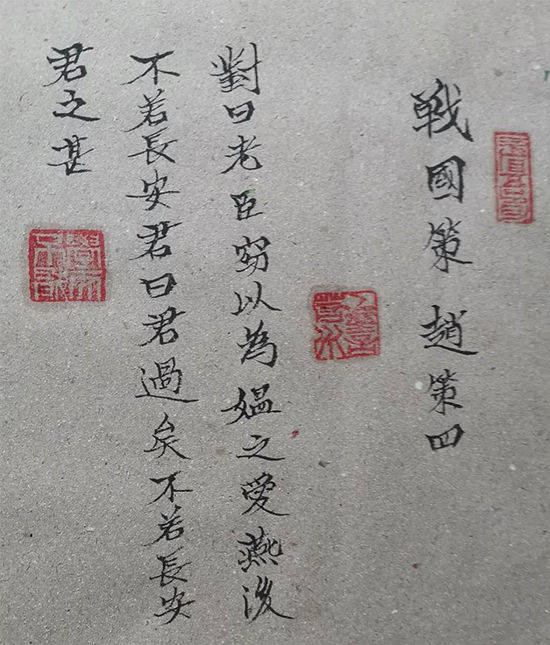 戦國策 趙策四
對曰老臣窃以為媼之愛燕後
不若長安君曰君過矣不若長安
君之甚